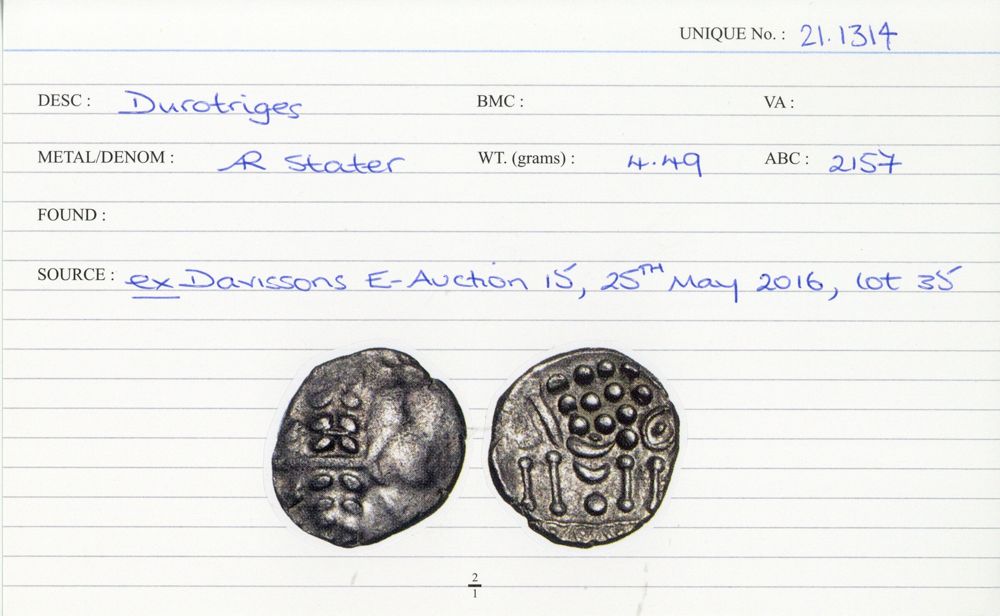 UNIQUE No. : 21.1314
DESC : Durotriges BMC : VA :
METAL/DENOM : AR Stater WT. (grams) : 4.49 ABC : 2157
FOUND :
SOURCE : ex Davissons E-Auction 15, 25TH May 2016, lot 35
2
1